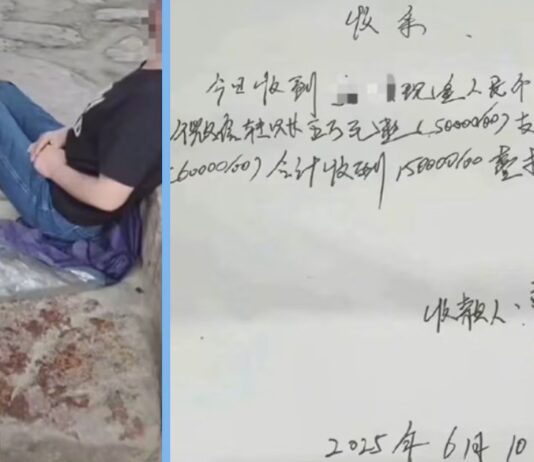 收条
今日收到 现金人民币
微信转账 万元整(50000.00)支
60000.00)合计收到150000.00整
收款人:
2025年6月10